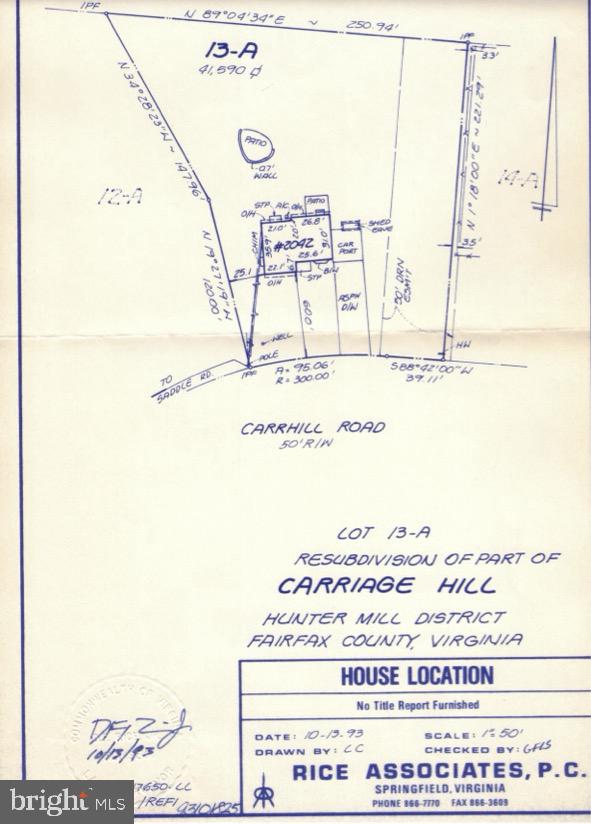 IPF
N 89°04'34"E ~ 250.94'
IPF
13-A
41,590 ф
33'
N 34°28'23"W ~ 147.96'
N 1°18'00"E ~ 221.29'
PATIO
0.7'
WALL
12-A
14-A
STP A/C O/H
PATIO
O/H
21.0'
26.8'
SHED
EAVE
CHIM
35.9'
#2042
31.0'
CAR
PORT
35'
25.1
22.1'
25.6'
B/W
O/H
STP
N 19°27'19"W
120.00'
60.0'
ASPH
D/W
DRN
ESM'T
WELL
POLE
HW
IPF
TO
SADDLE RD.
A = 95.06'
R = 300.00'
S88°42'00"W
39.11'
CARRHILL ROAD
50' R/W
LOT 13-A
RESUBDIVISION OF PART OF
CARRIAGE HILL
HUNTER MILL DISTRICT
FAIRFAX COUNTY, VIRGINIA
HOUSE LOCATION
No Title Report Furnished
DATE: 10-13-93 SCALE: 1"=50'
DRAWN BY: CC CHECKED BY:
RICE ASSOCIATES, P.C.
SPRINGFIELD, VIRGINIA
PHONE 866-7770 FAX 866-3609
COMMONWEALTH OF
10/13/93
7650-LL
/REFI
93101825
bright MLS